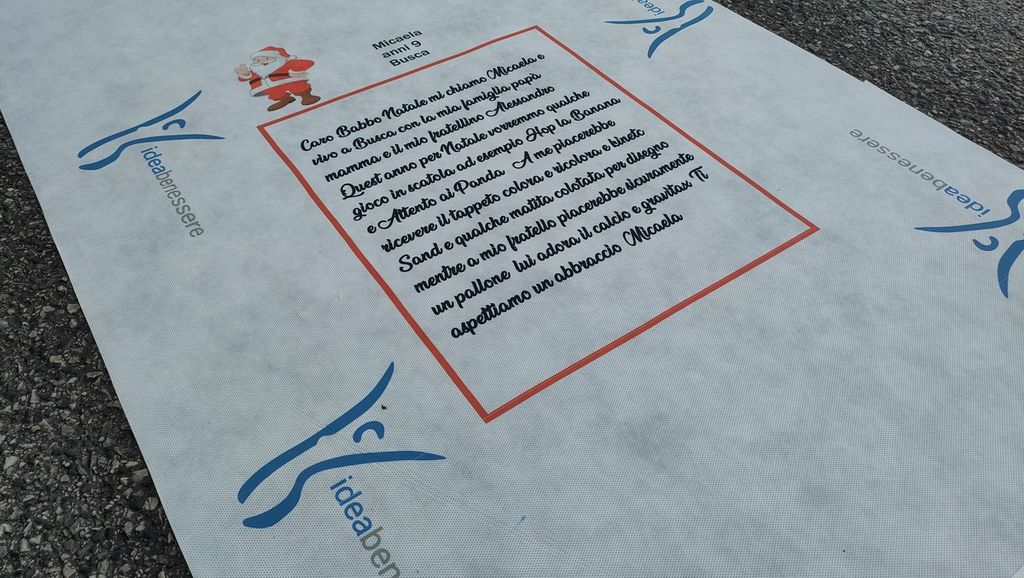 Micaela
anni 9
Busca
Caro Babbo Natale mi chiamo Micaela e
vivo a Busca con la mia famiglia papà
mamma e il mio fratellino Alessandro
Quest anno per Natale vorremmo qualche
gioco in scatola ad esempio Hop la Banana
e Attento ai Panda A me piacerebbe
ricevere il tappeto colora e ricolora e kinetic
Sand e qualche matita colotata per disegno
mentre a mio fratello piacerebbe sicuramente
un pallone lui adora il calcio e gravitax Ti
aspettiamo un abbraccio Micaela
ideabenessere
ideabenessere
ideabenessere
ideaben